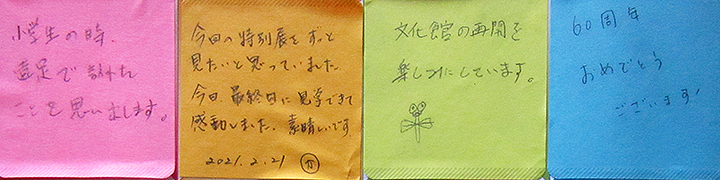 小学生の時、
遠足で訪れた
ことを思い出します。
今回の特別展をずっと
見たいと思っていました。
今日、最終日に見学できて
感動しました。素晴しいです
2021.2.21
文化館の再開を
楽しみにしています。
60周年
おめでとう
ございます!